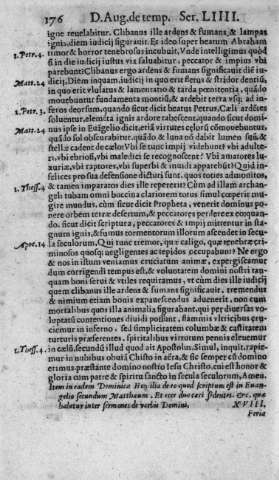 176 D. Aug. de temp. Ser. LIIII.
igne reuelabitur. Clibanus ille ardens & fumans, & lampas
ignis, diem iudicij figurauit. Et ideo super beatum Abraham
1. Petr. 4. timor & horror tenebrosus incubuit. Vnde intelligimus quòd
si in die iudicij iustus vix saluabitur, peccator & impius vbi
parebunt? Clibanus ergo ardens & fumans significauit diẽ iu-
Matt. 24 dicij. Diem inquam iudicij in quo erit fletus & stridor dentiũ,
in quo erit vlulatus & lamentatio & tarda pœnitentia, quando
mouebuntur fundamenta montiũ, & ardebit terra vsq; ad in-
2. Petr. 3. feros deorsum, quando sicut dicit beatus Petrus, Cœli ardētes
soluentur, & elementa ignis ardore tabescent, quando sicut domi-
Matt. 24 nus ipse in Euãgelio dicit, erũt virtutes cœlorũ cõmouebuntur,
quãdo sol obscurabitur, quãdo & luna nõ dabit lumen suũ, &
stellæ cadent de cælo: Vbi se tunc impij videbunt? vbi adulte-
ri, vbi ebriosi, vbi maledici se recognoscent? Vbi amatores lu-
xuriæ, vbi raptores, vbi superbi & inuidi apparebũt? Quid in-
felices pro sua defensione dicturi sunt, quos toties admonitos,
1. Thess. 4 & tamen imparatos dies ille reperiet? Cùm ad illam archan-
geli tubam omni buccina clariorem totus simul cœperit mu-
gire mundus, cùm sicut dicit Propheta, venerit dominus po-
nere orbem terræ desertum, & peccatores perdere ex ea: quan-
do, sicut dicit scriptura, peccatores & impij mittentur in sta-
gnum ignis, & fumus tormentorum illorum ascendet in secu-
Apoc. 14 la seculorum. Qui tunc tremor, quæ caligo, quæ tenebræ cri-
minosos quosq; negligentes ac tepidos occupabũt? Ne ergo
& nos in illum veniamus cruciatum animæ, expergiscamur
dum corrigendi tempus est, & voluntatem domini nostri tan-
quam boni serui & vtiles requiramus, vt cùm dies ille iudicij
quem clibanus ille ardens & fumans significauit, tremendus
& nimium etiam bonis expauescendus aduenerit, non cum
mortalibus quos illa animalia figurabant, qui per diuersas vo-
luptatũ contentiones diuidi possunt, flammis vltricibus cru-
ciemur in inferno, sed simplicitatem columbæ & castitatem
turturis præferentes, spiritalibus virtutum pennis eleuemur
1. Thess. 4. in cœlũ, secundũ illud quod ait Apostolus, Simul, inquit, rapie-
mur in nubibus obuiã Christo in aëra, & sic semper cũ domino
erimus: præstante domino nostro Iesu Christo, cui est honor &
gloria cum patre & spiritu sancto in secula seculorum, Amen.
Item in eadem Dominica
gelio secundum Matthæum. Et ecce duo cæci sedentes. &c. quæ
habetur inter sermones de verbis Domini. XVIII.
Feria